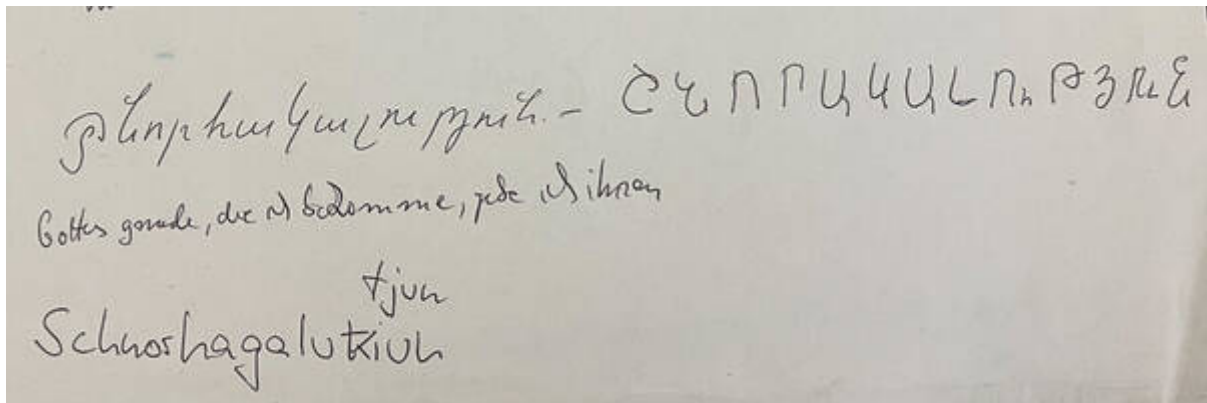 Շնորհակալություն.- ՇՆՈՐԱԿԱԼՈւԹՅՈւՆ
Gottes gnade, die ich bekomme, gebe ich ihnen
tjun
Schnorhagalutkiun